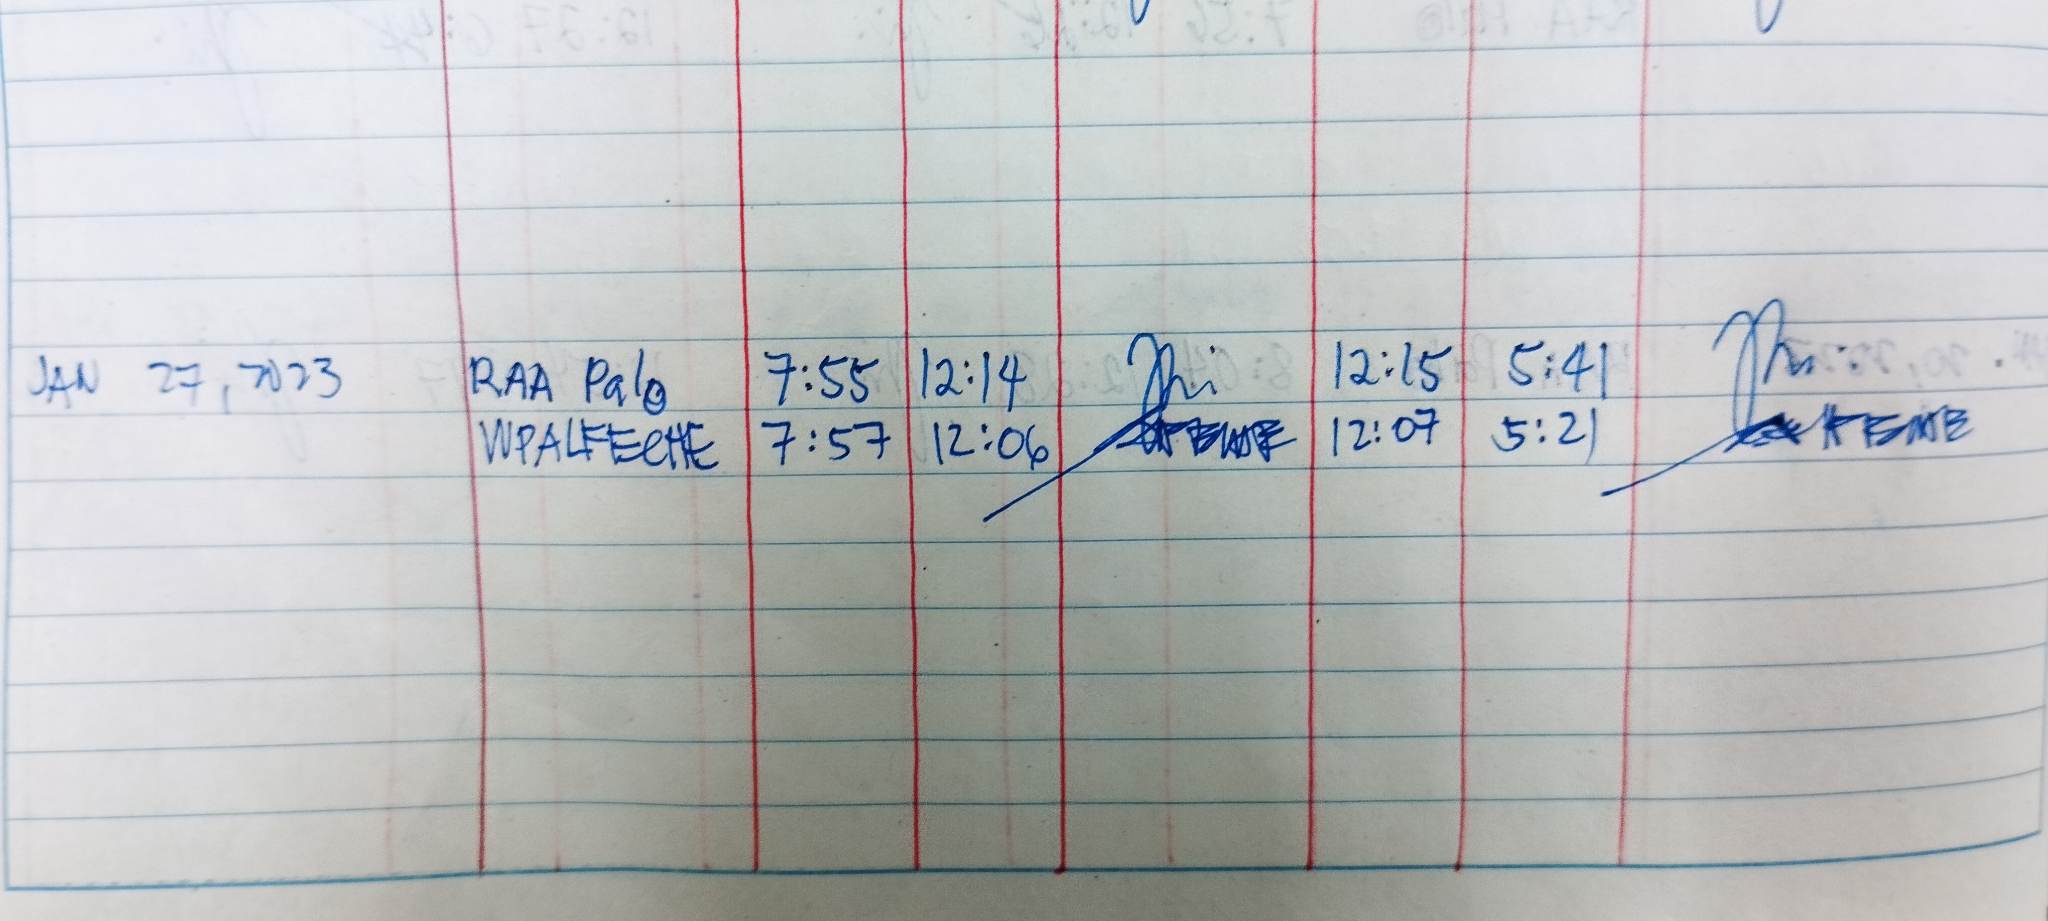 JAN 27, 2023 RAA Palo 7:55 12:14 12:15 5:41
WPALFECHE 7:57 12:06 12:07 5:21